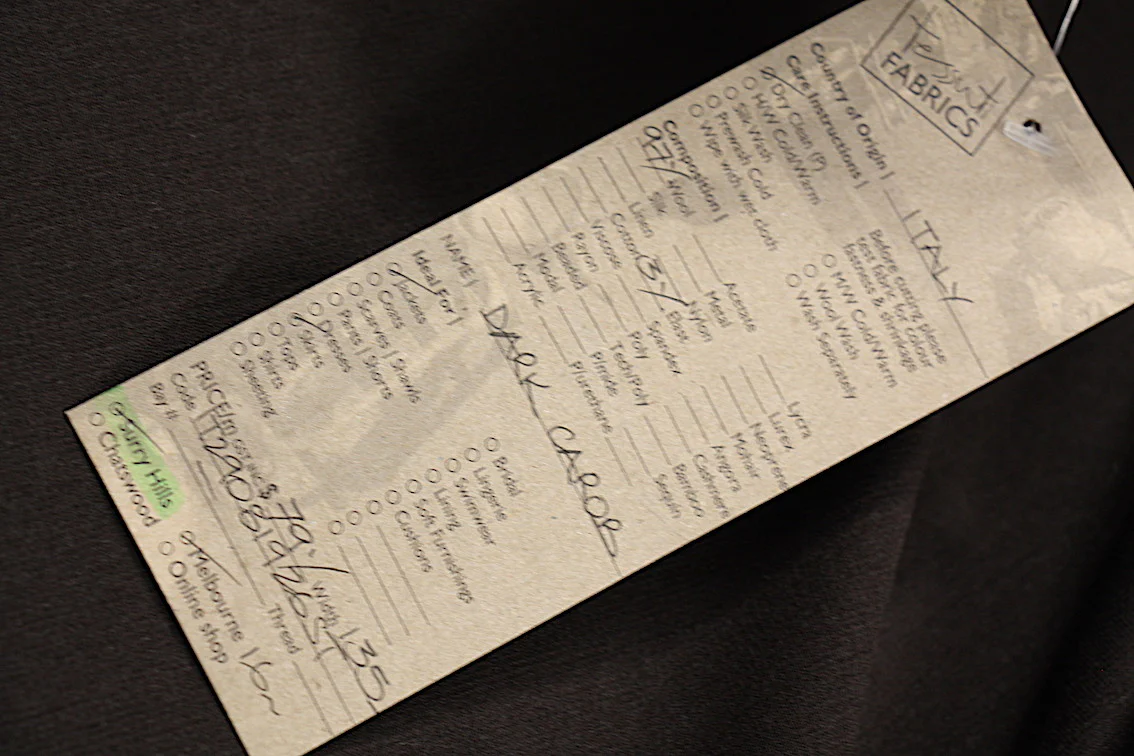 Tessuti
FABRICS
Country of Origin | ITALY
Care Instructions |
Dry Clean (P)
H/W Cold/Warm
Silk Wash
Prewash Cold
Wipe with wet cloth
Before cutting please
test fabric for colour
fastness & shrinkage
M/W Cold/Warm
Wool Wash
Wash Separately
Composition |
97% Wool
Silk
Linen
Cotton
Viscose
Rayon
Beaded
Modal
Acrylic
Acetate
Metal
Nylon
3% Elast
Spandex
Poly
Tech/Poly
Plurethane
Lycra
Lurex
Neoprene
Mohair
Angora
Cashmere
Bamboo
Sequin
NAME | DARK CAROB
Ideal For |
Jackets
Coats
Scarves | Shawls
Pants | Shorts
Dresses
Skirts
Tops
Shirts
Sheeting
Bridal
Lingerie
Swimwear
Lining
Soft Furnishings
Cushions
PRICE/m $ 79. Width 135
Code
Bay #: Thread
Surry Hills
Melbourne 16m
Chatswood
Online shop